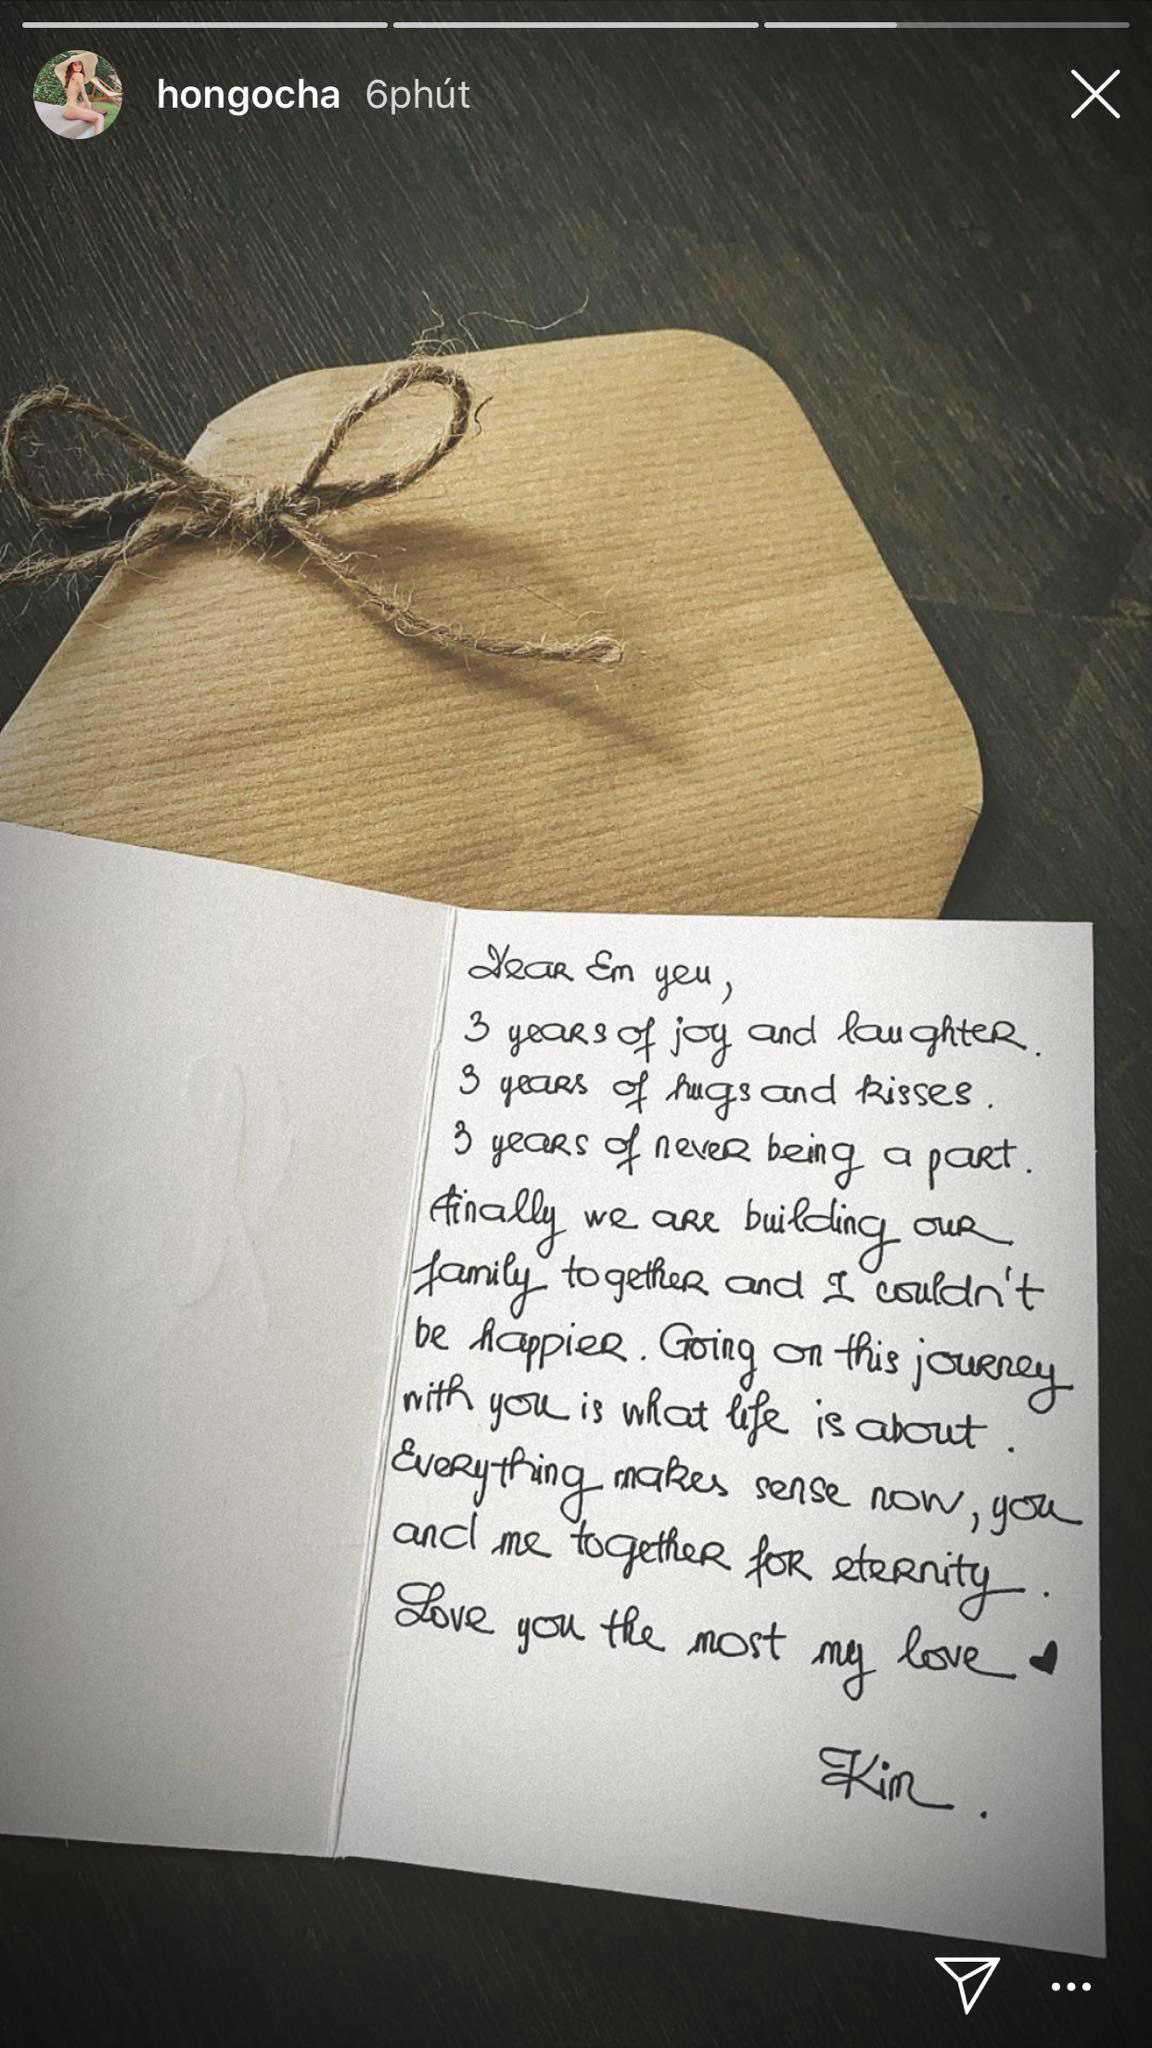 hongocha 6phút
Dear Em yeu,
3 years of joy and laughter.
3 years of hugs and kisses.
3 years of never being a part.
finally we are building our
family together and I couldn't
be happier. Going on this journey
with you is what life is about.
Everything makes sense now, you
and me together for eternity.
Love you the most my love ♥
Kim.